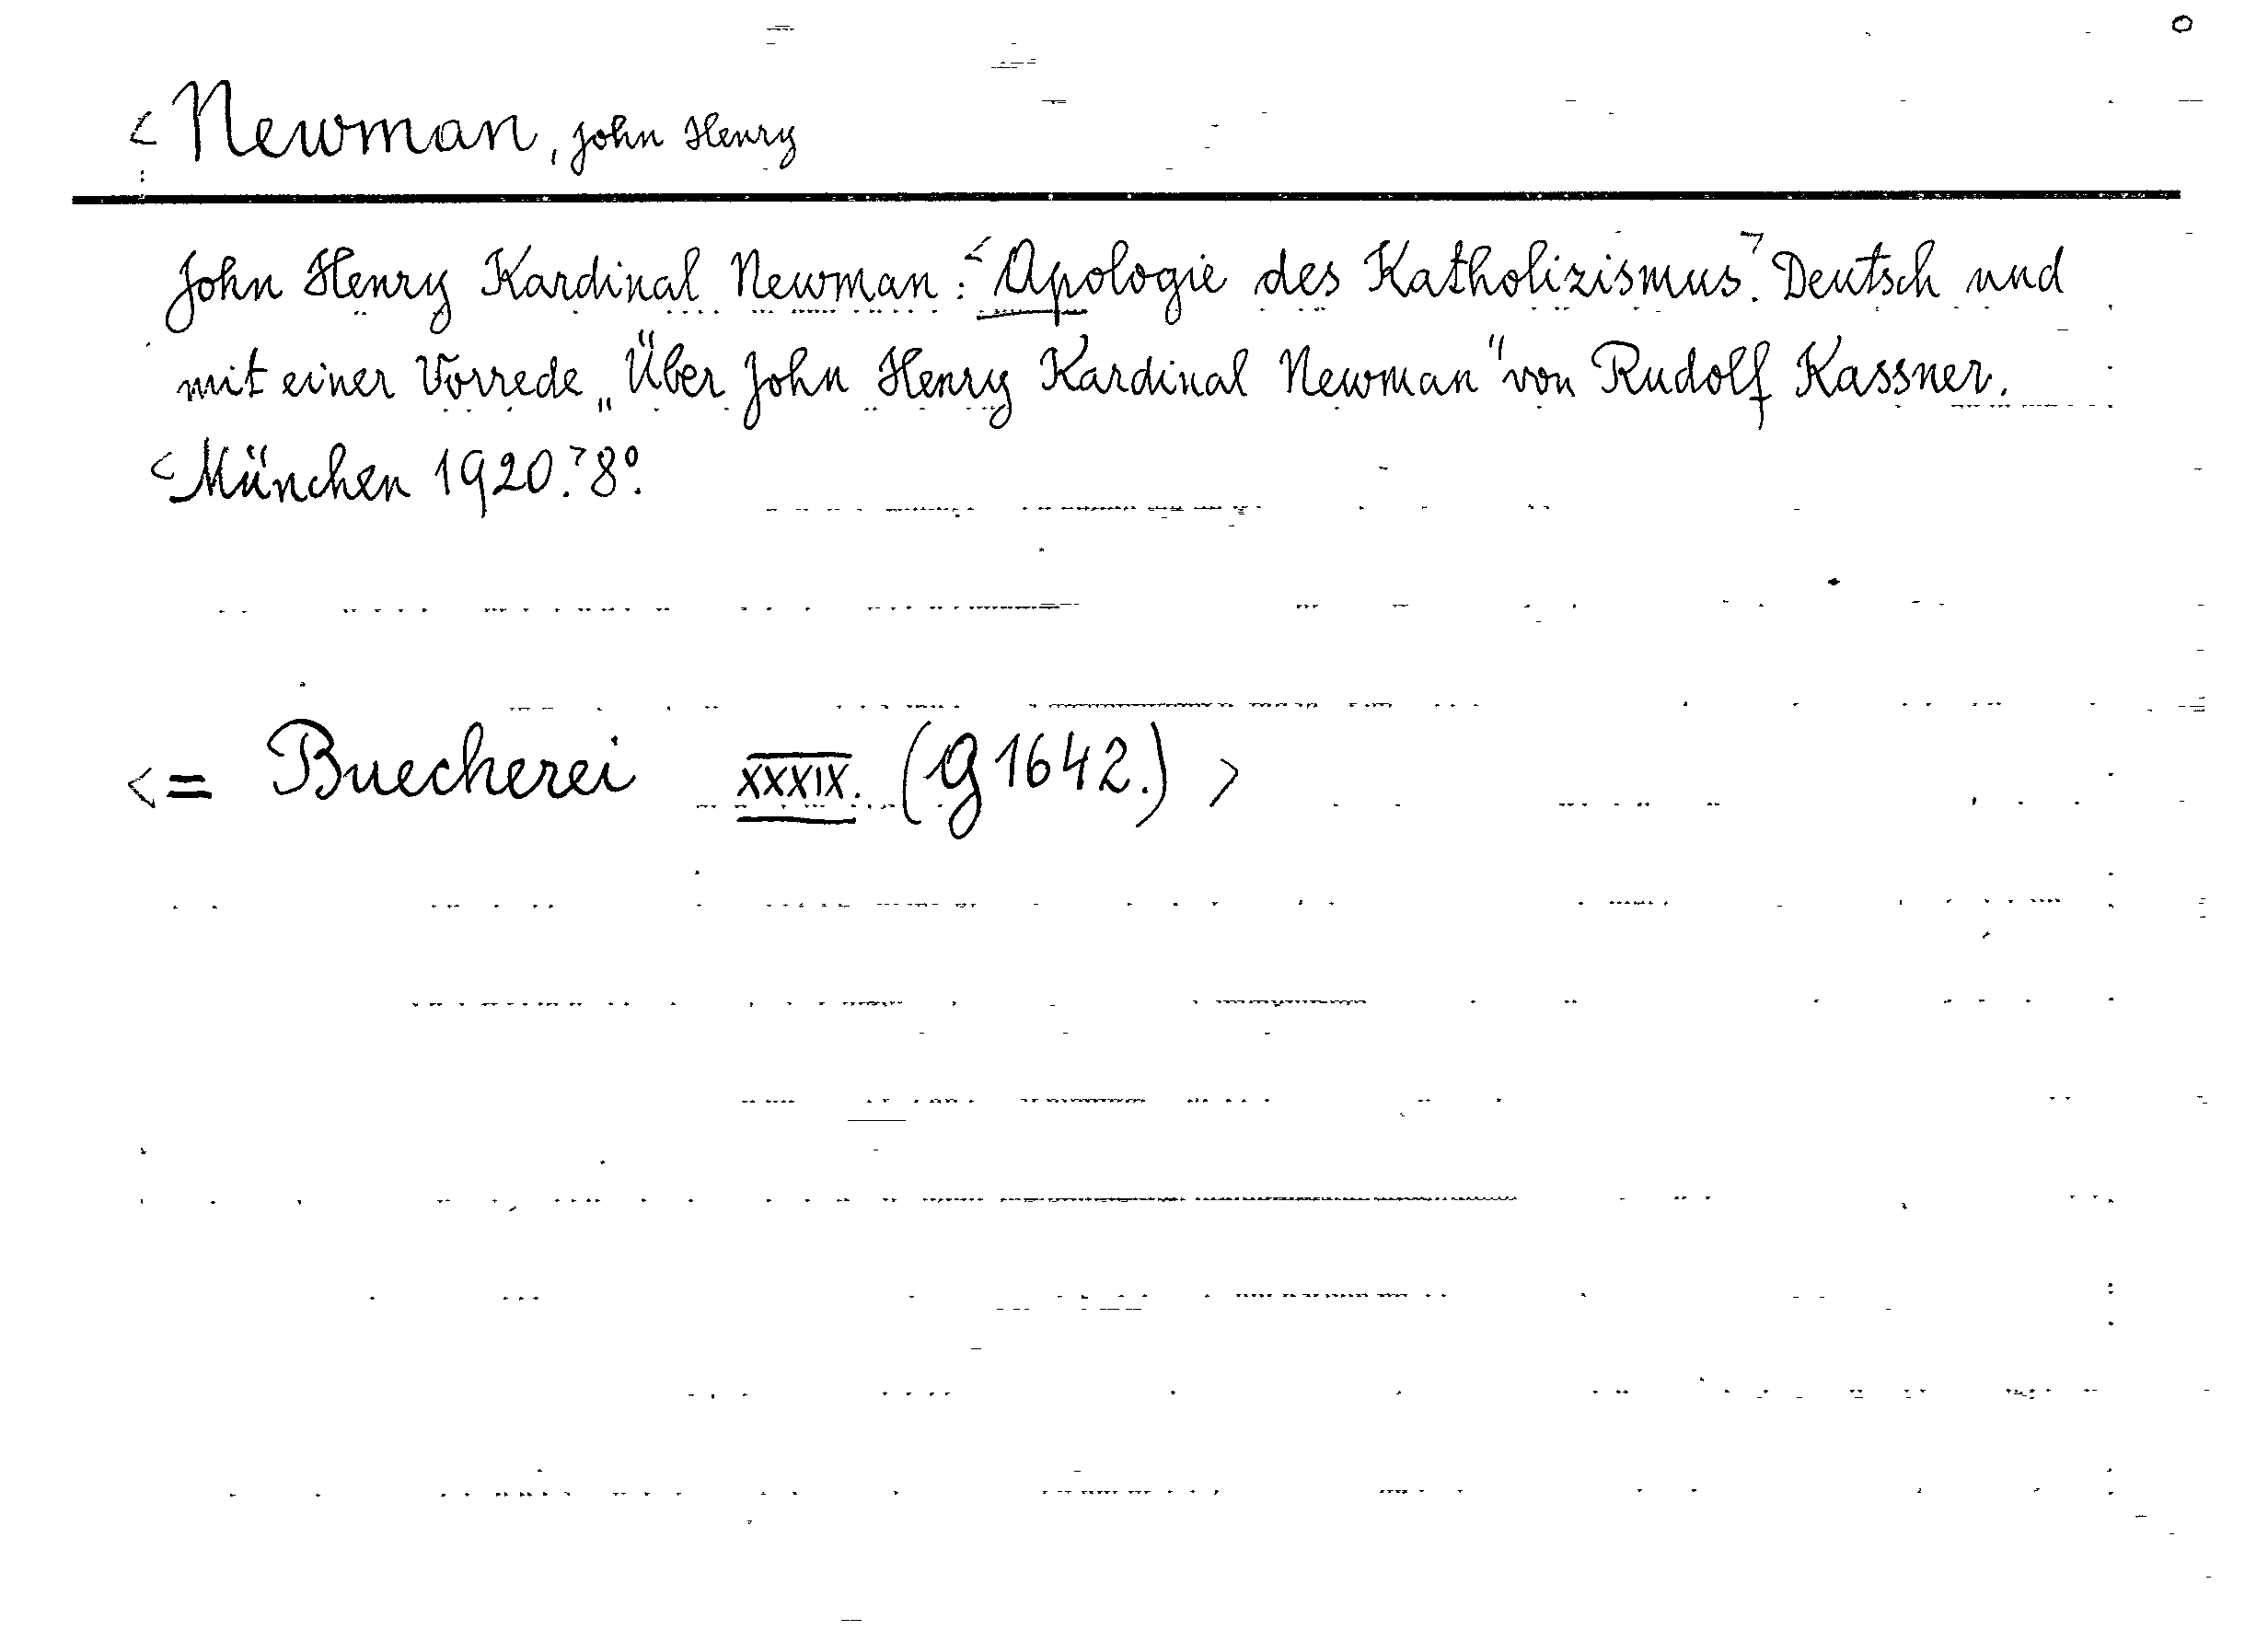 <Newman, John Henry
John Henry Kardinal Newman: <Apologie des Katholizismus.> Deutsch und
mit einer Vorrede „Über John Henry Kardinal Newman" von Rudolf Kassner.
<München 1920.> 8°.
<= Buecherei XXXIX. (G 1642.) >